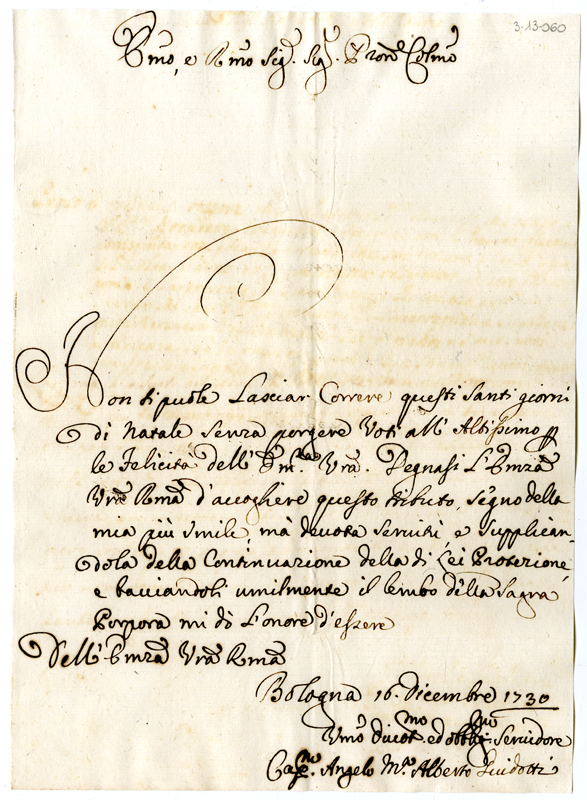 3-13-060
Emo, e Rmo Sig.r Sig.r Pron.e Colmo
Non si puole Lasciar Correre questi Santi giorni
di Natale senza porgere Voti all' Altissimo p
le Felicità dell' Em.za Vra. Degnasi L'Emza
Vra Rma d'accogliere questo tributo, segno della
mia più umile, mà devota servitù e supplican-
dola della Continuazione della di Lei Protezione
e bacciandoli umilmente il lembo della Sagra
Porpora mi dò L'onore d'essere
Dell' Emza Vra Rma
Bologna 16. Dicembre 1730
Umo divot.mo ed obblig.mo Servidore
Angelo M.a Alberto Guidotti